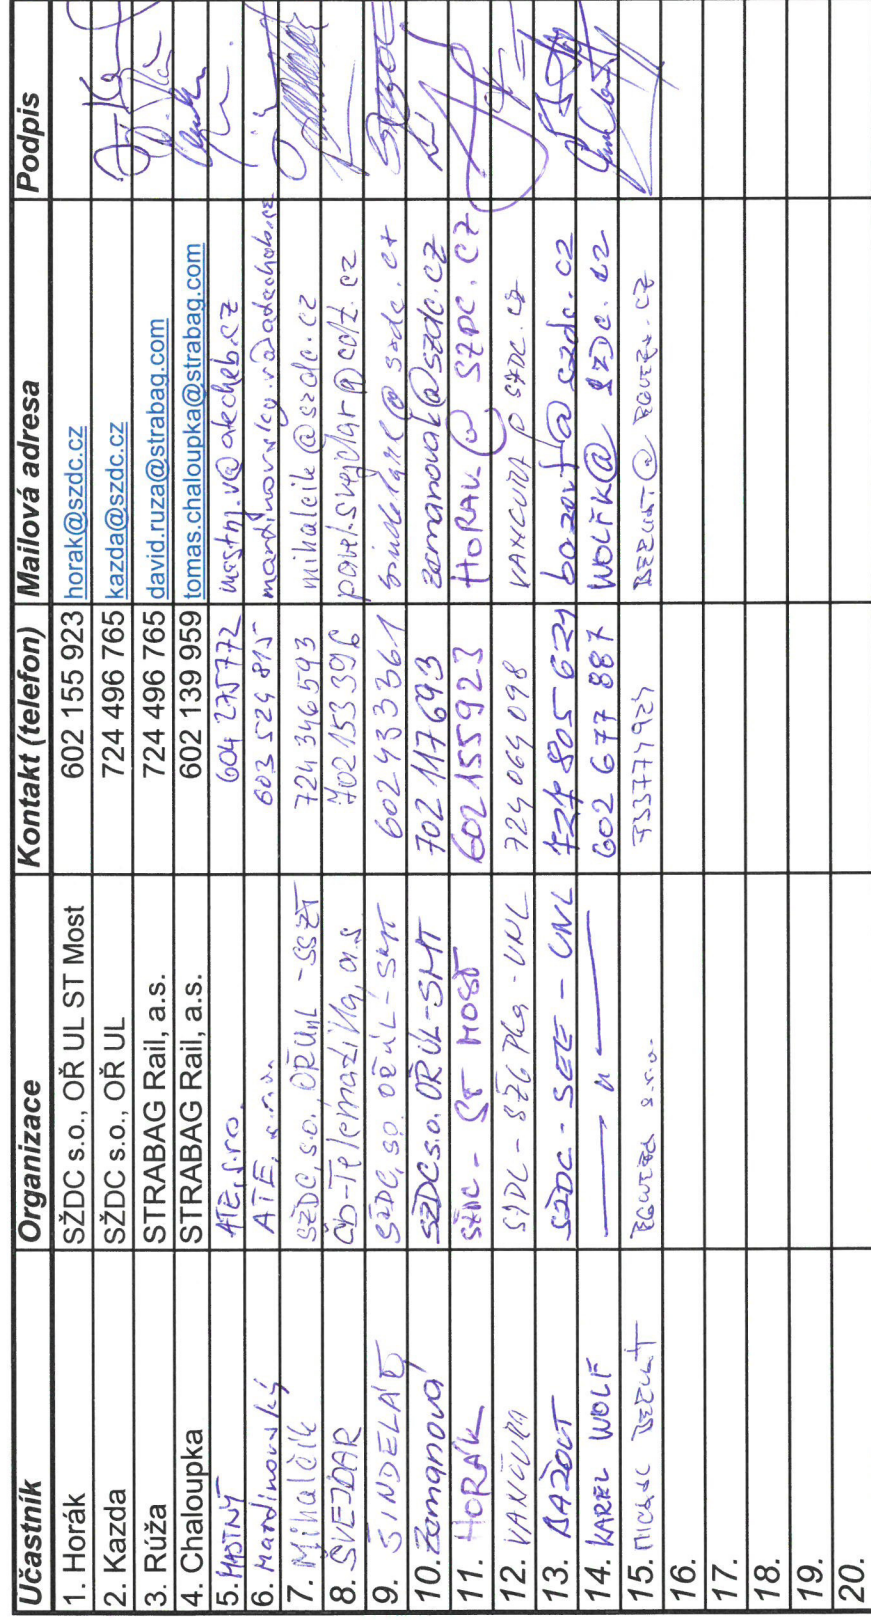 Účastník Organizace Kontakt (telefon) Mailová adresa Podpis
1. Horák SŽDC s.o., OŘ UL ST Most 602 155 923 horak@szdc.cz
2. Kazda SŽDC s.o., OŘ UL 724 496 765 kazda@szdc.cz
3. Rúža STRABAG Rail, a.s. 724 496 765 david.ruza@strabag.com
4. Chaloupka STRABAG Rail, a.s. 602 139 959 tomas.chaloupka@strabag.com
5. MASTNÝ ATE, s.r.o. 604 275772 mastny.v@atecheb.cz
6. Mardinovský ATE, s.r.o. 603 524 815
7. Mihalčík SŽDC, s.o. OŘ UnL - SSZT 724 346 593 mihalcik@szdc.cz
8. ŠVEJDAR ČD-Telematika, a.s 702 153 396 pavel.svejdar@cdt.cz
9. ŠINDELÁŘ SŽDC, s.o. OŘ UL - SMT 602433361 sindelarl@szdc.cz
10. Zemanová SŽDC s.o. OŘ ÚL-SMT 702 117 693 zemanovak@szdc.cz
11. HORÁK SŽDC - ST MOST 602155923 HORAK@SZDC.CZ
12. VANČURA SŽDC - SŽG Pha - UNL 724 064 098 VANCURA@SZDC.CZ
13. BAŽOUT SŽDC - SEE - UNL 727 805 621 bazout@szdc.cz
14. KAREL WOLF — 〃 — 602 677 887 WOLFK@SZDC.CZ
15. s.r.o.
16.
17.
18.
19.
20.